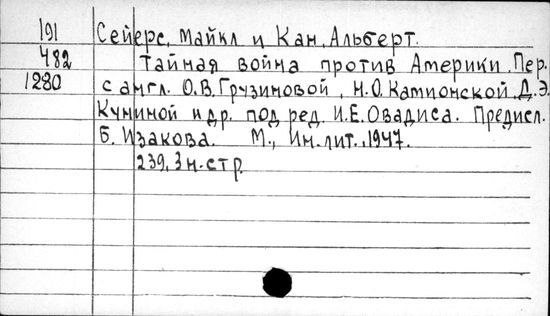 191 Сейерс, Майкл и Кан, Альберт.
482 Тайная война против Америки. Пер.
1280 с англ. О.В. Грузиновой, Н.О. Кампонской, Д.Э.
Куниной и др. под ред. И.Е. Овадиса. Предисл.
Б. Изакова. М., Ин. лит., 1947.
239, 3 н. стр.